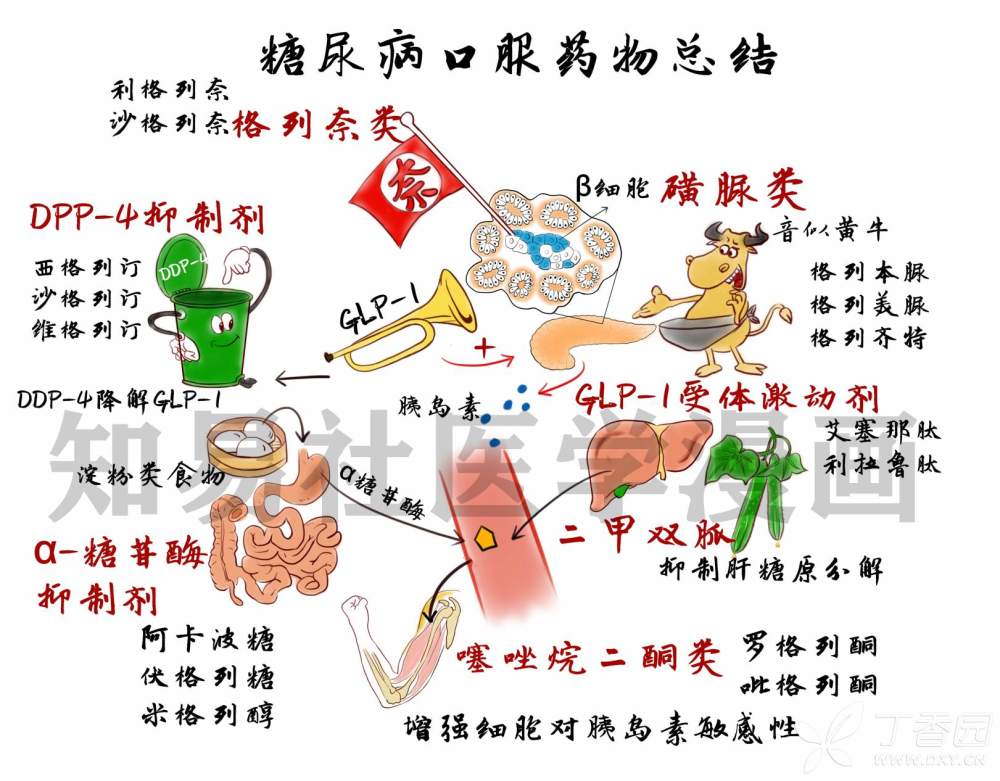 糖尿病口服药物总结
利格列奈
沙格列奈
格列奈类
奈
β细胞
磺脲类
音似黄牛
格列本脲
格列美脲
格列齐特
DPP-4抑制剂
西格列汀
沙格列汀
维格列汀
DDP-4
GLP-1
+
DDP-4降解GLP-1
胰岛素
GLP-1受体激动剂
艾塞那肽
利拉鲁肽
淀粉类食物
α糖苷酶
α-糖苷酶
抑制剂
阿卡波糖
伏格列糖
米格列醇
二甲双胍
抑制肝糖原分解
噻唑烷二酮类
罗格列酮
吡格列酮
增强细胞对胰岛素敏感性
知易社医学漫画
丁香园
WWW.DXY.CN